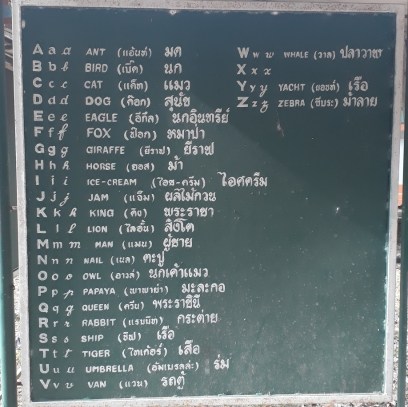 A a a ANT (แอ้นท์) มด
B b b BIRD (เบิ๊ด) นก
C c c CAT (แค๊ท) แมว
D d d DOG (ด๊อก) สุนัข
E e e EAGLE (อีกึ้ล) นกอินทรีย์
F f f FOX (ฟ๊อก) หมาป่า
G g g GIRAFFE (ยีราฟ) ยีราฟ
H h h HORSE (ฮอส) ม้า
I i i ICE-CREAM (ไอซ-ครีม) ไอศครีม
J j j JAM (แจ็ม) ผลไม้กวน
K k k KING (คิง) พระราชา
L l l LION (ไลอั้น) สิงโต
M m m MAN (แมน) ผู้ชาย
N n n NAIL (เนล) ตะปู
O o o OWL (อาวล์) นกเค้าแมว
P p p PAPAYA (พาพาย่า) มะละกอ
Q q q QUEEN (ควีน) พระราชินี
R r r RABBIT (แรบบิท) กระต่าย
S s s SHIP (ชิพ) เรือ
T t t TIGER (ไทเก้อร์) เสือ
U u u UMBRELLA (อัมเบรลล่ะ) ร่ม
V v v VAN (แวน) รถตู้
W w w WHALE (วาล) ปลาวาฬ
X x x
Y y y YACHT (ยอชท์) เรือ
Z z z ZEBRA (ซีบระ) ม้าลาย